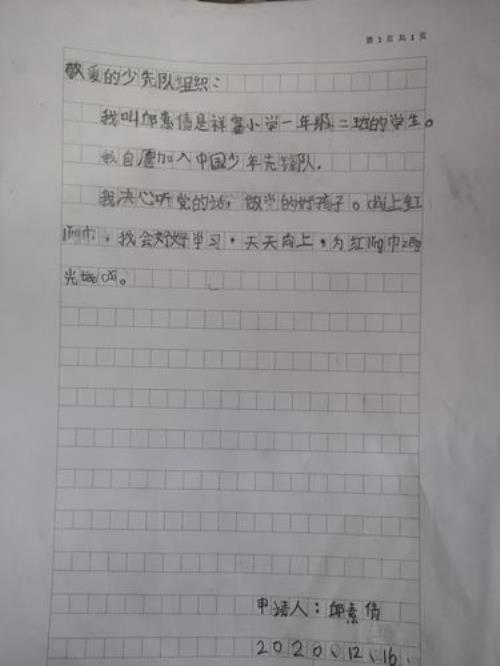 第 1 页 共 1 页
敬爱的少先队组织：
我叫邱素倩是祥富小学一年级二班的学生。
我自愿加入中国少年先锋队.
我决心听党的话，做党的好孩子。戴上红
领巾，我会好好学习，天天向上，为红领巾
光
申请人：邱素倩
2020、12、16、